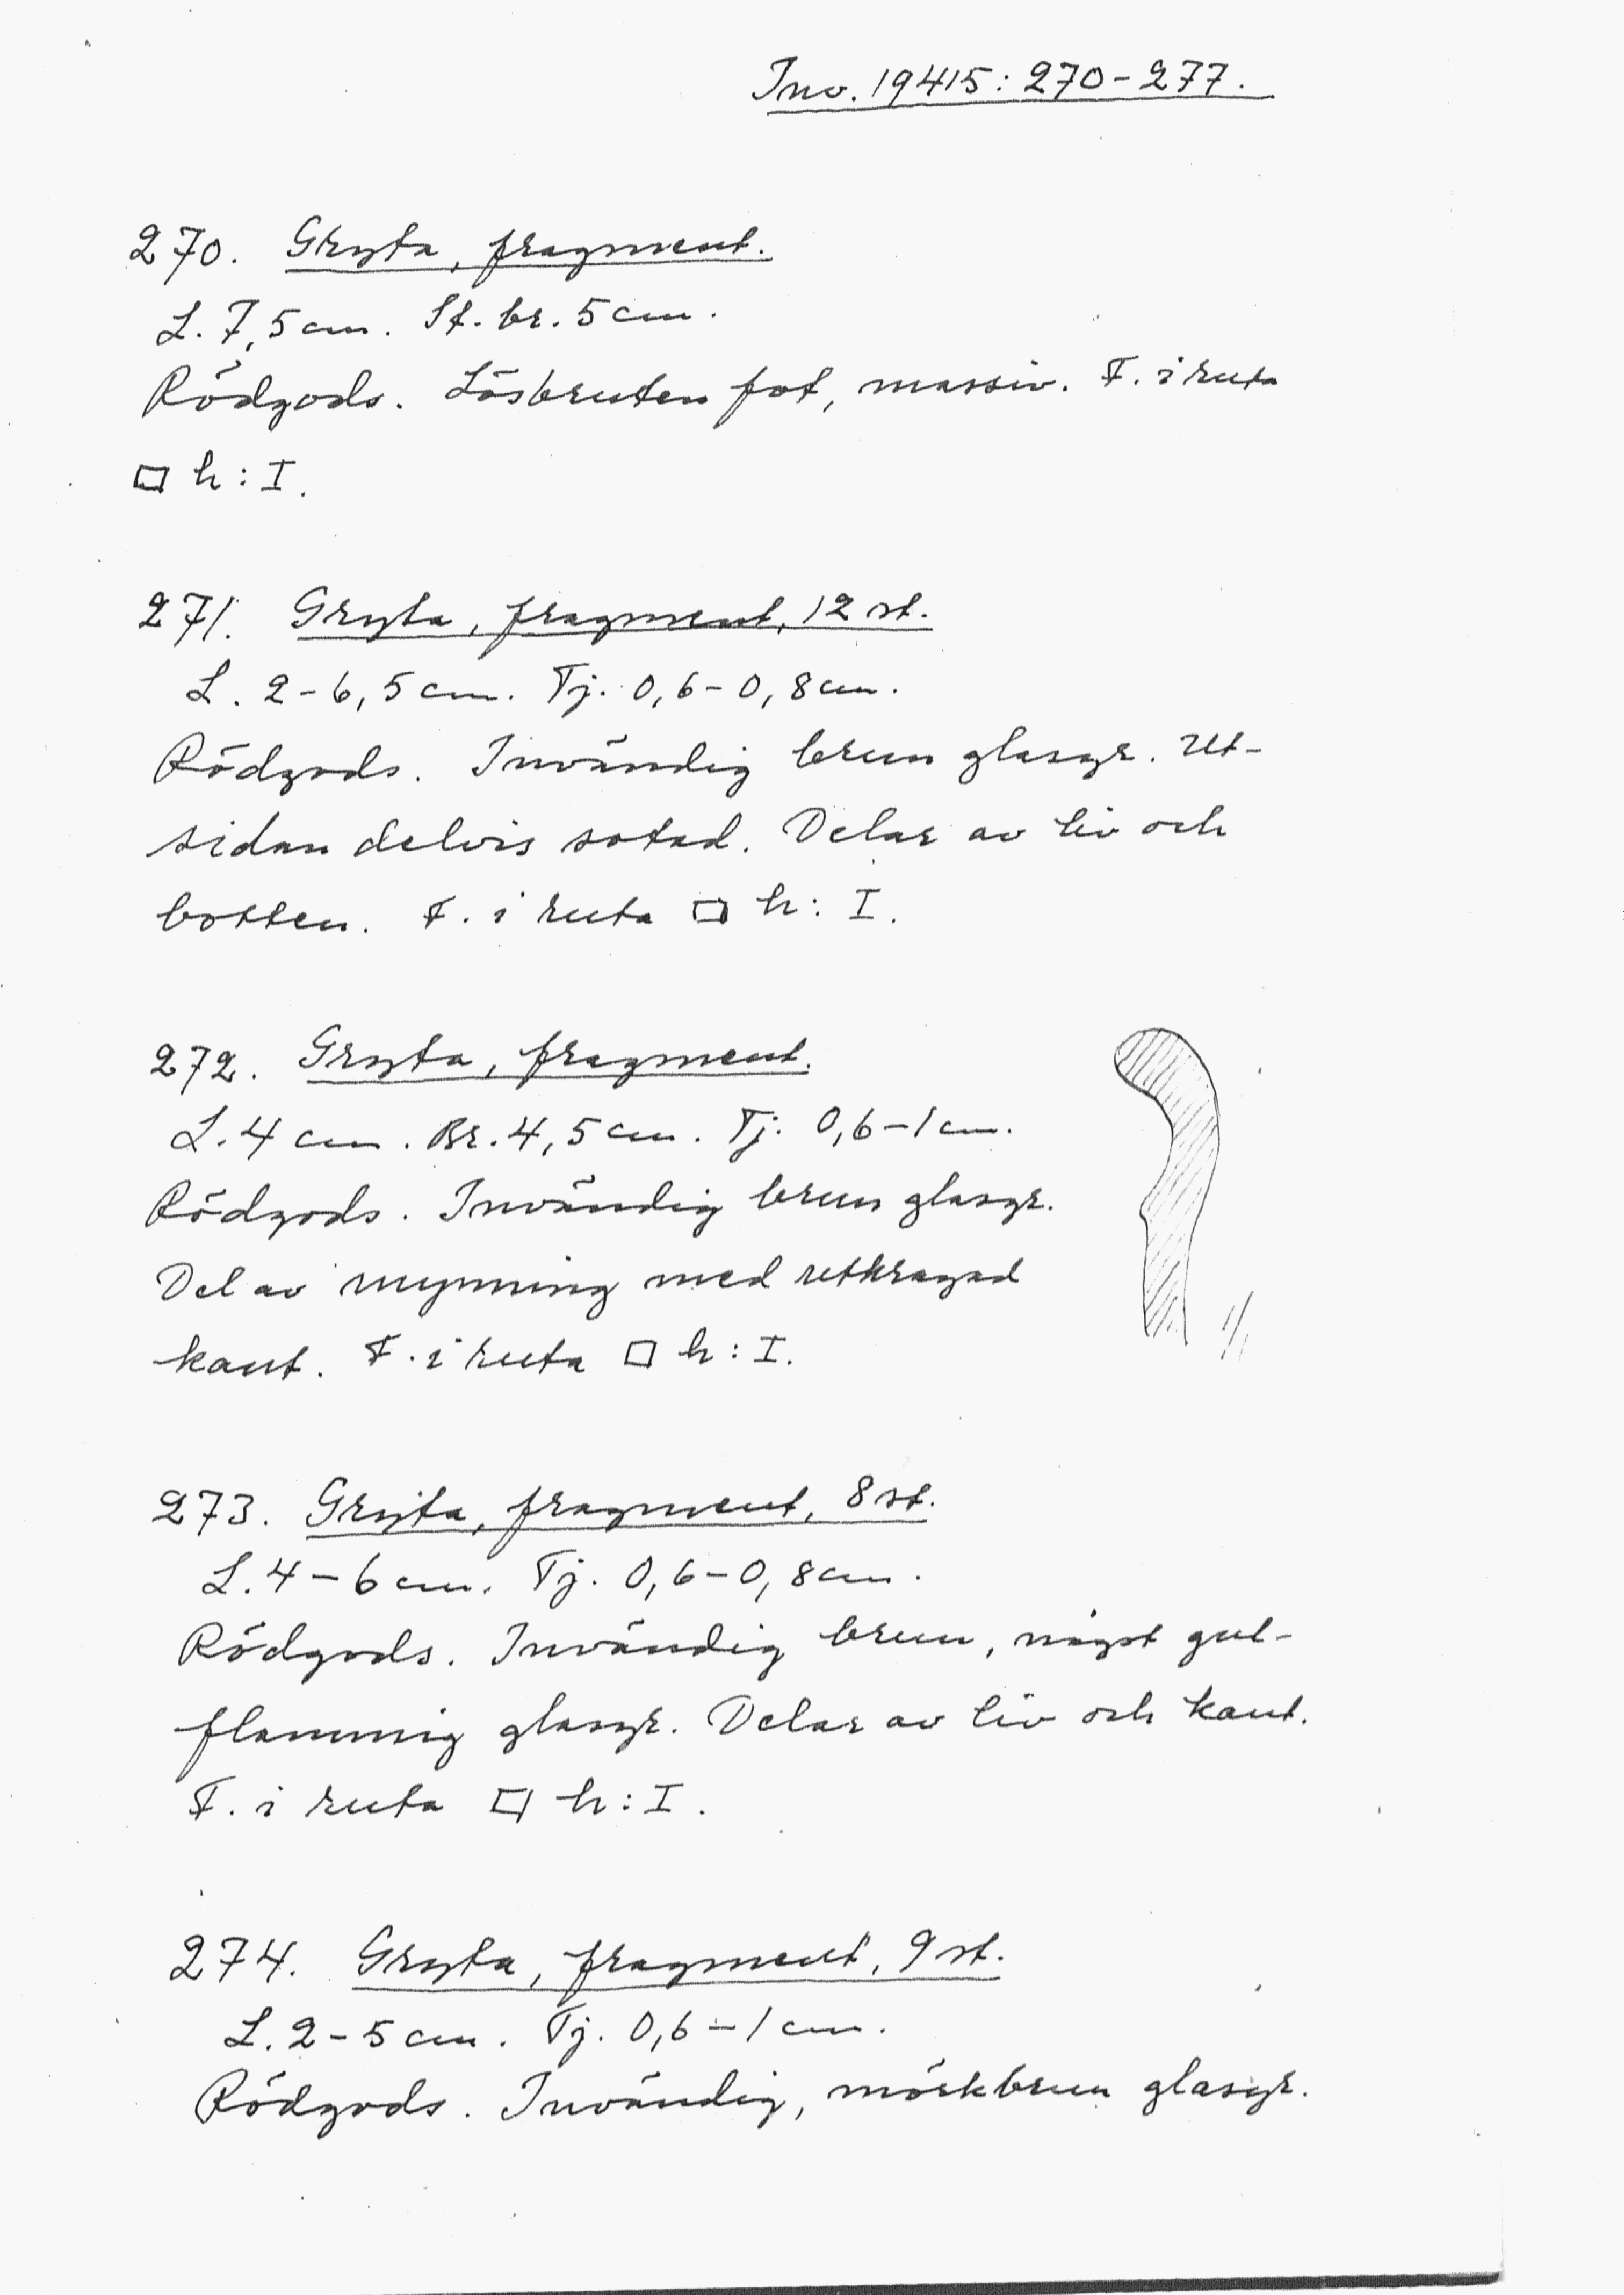 Inv. 19415: 270-277.
270. Gryta, fragment.
L. 7,5 cm. St. br. 5 cm.
Rödgods. Lösbruten fot, massiv. F. i ruta
□ h: I.
271. Gryta, fragment, 12 st.
L. 2-6,5 cm. Tj. 0,6-0,8 cm.
Rödgods. Invändig brun glasyr. Ut-
sidan delvis sotad. Delar av liv och
botten. F. i ruta □ h: I.
272. Gryta, fragment.
L. 4 cm. Br. 4,5 cm. Tj. 0,6-1 cm.
Rödgods. Invändig brun glasyr.
Del av mynning med utkragad
kant. F. i ruta □ h: I.
1/1
273. Gryta, fragment, 8 st.
L. 4-6 cm. Tj. 0,6-0,8 cm.
Rödgods. Invändig brun, något gul-
flammig glasyr. Delar av liv och kant.
F. i ruta □ h: I.
274. Gryta, fragment, 9 st.
L. 2-5 cm. Tj. 0,6-1 cm.
Rödgods. Invändig, mörkbrun glasyr.